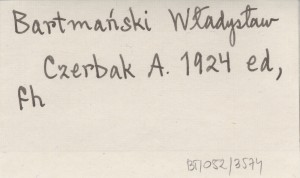 Bartmański Władysław
Czerbak A. 1924 ed,
fh
BП/052/3574